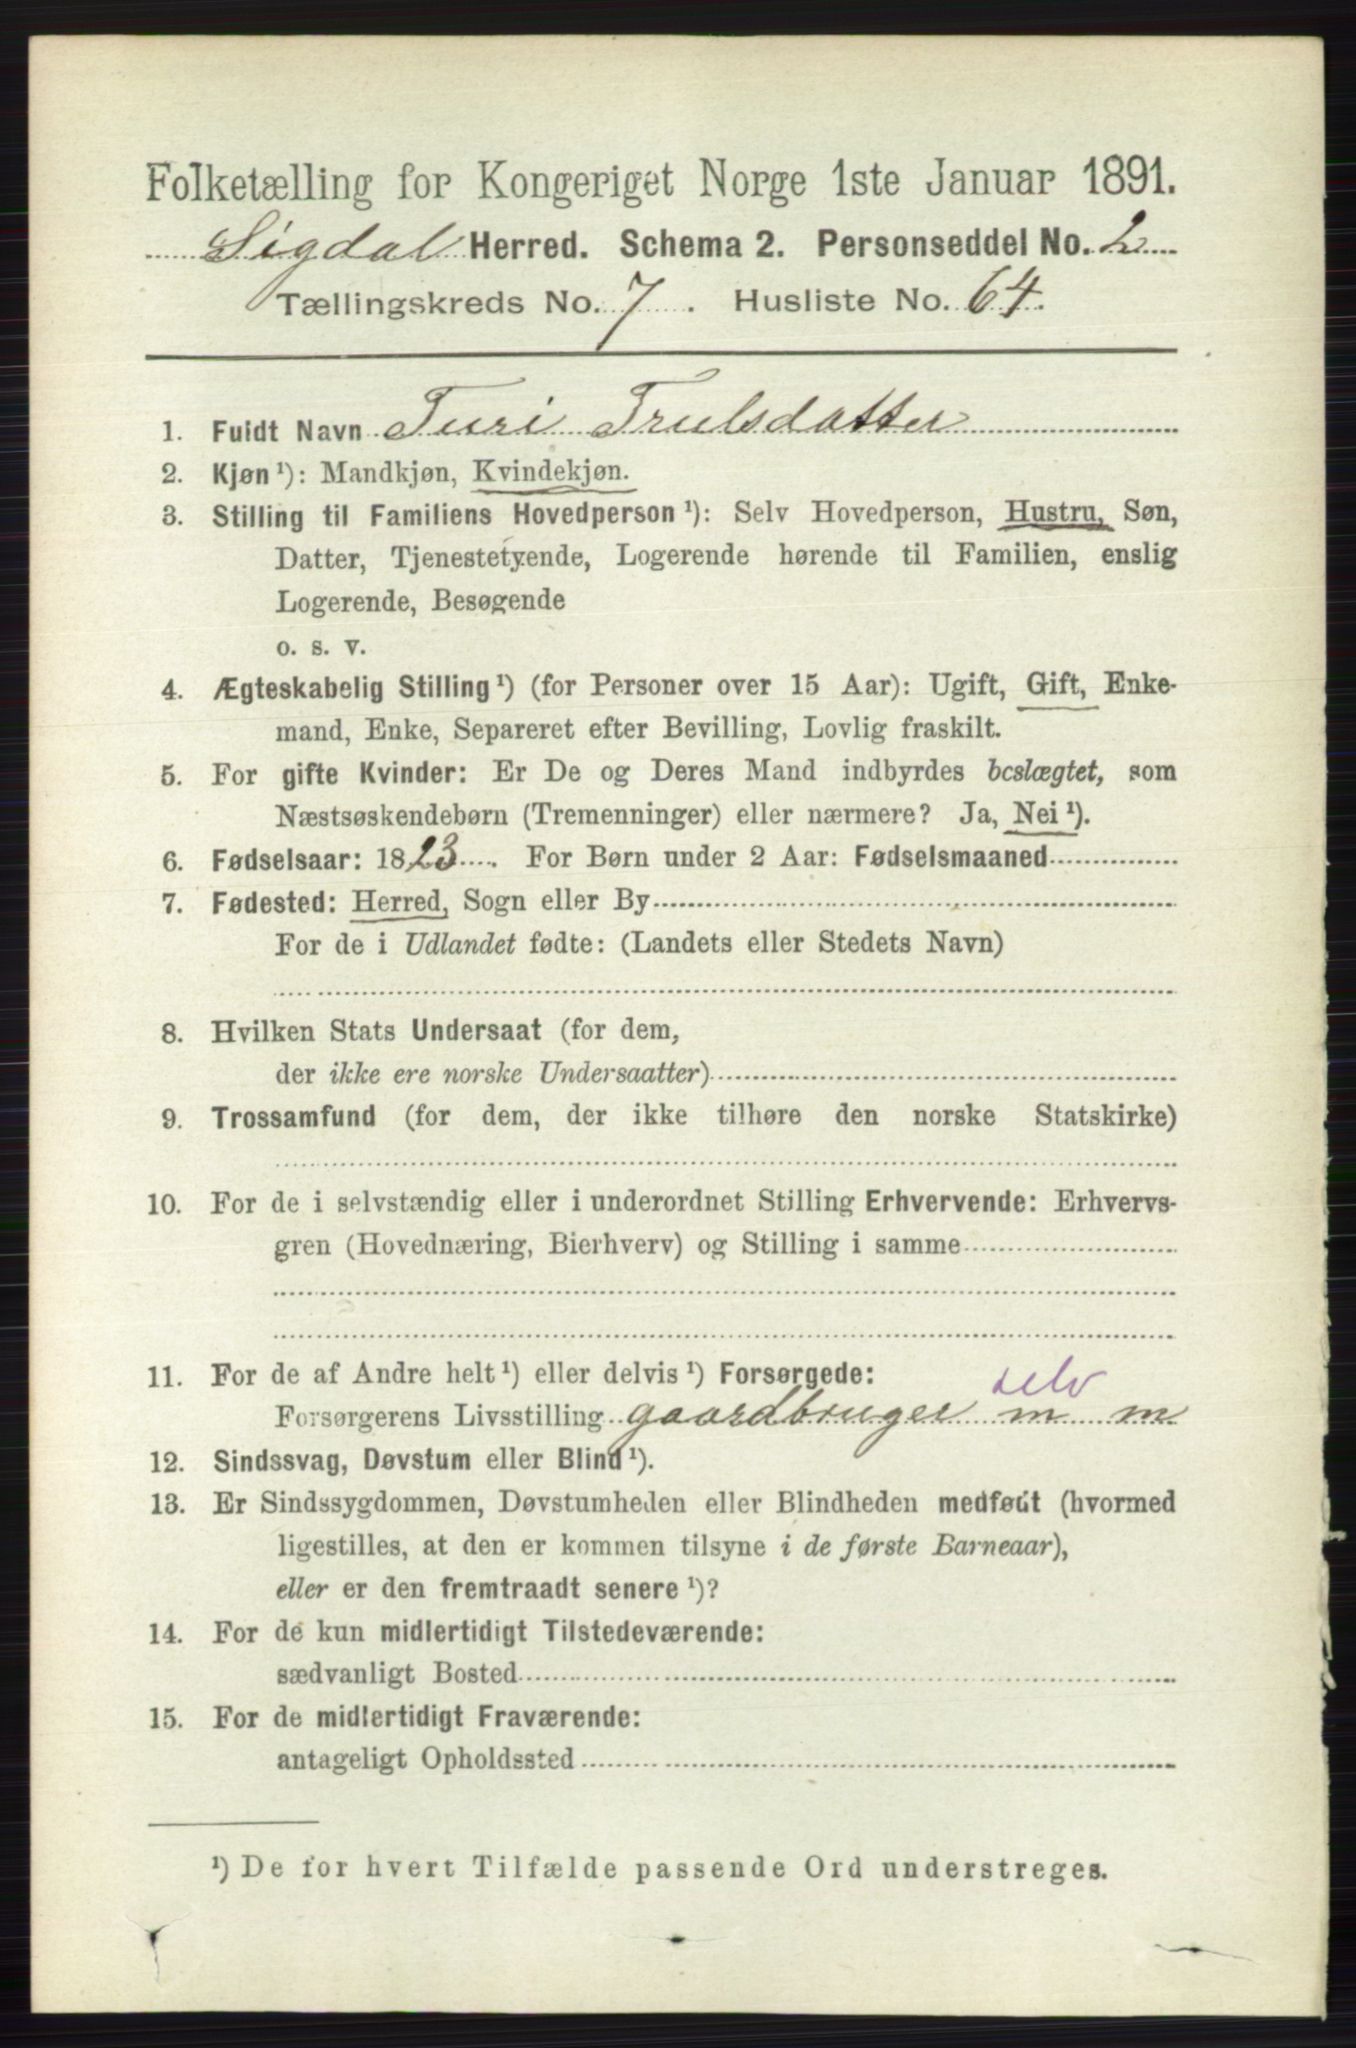 Folketælling for Kongeriget Norge 1ste Januar 1891.
Sigdal Herred. Schema 2. Personseddel No. 2
Tællingskreds No. 7. Husliste No. 64.
1. Fuldt Navn Turi Trulsdatter
2. Kjøn ¹): Mandkjøn, Kvindekjøn.
3. Stilling til Familiens Hovedperson ¹): Selv Hovedperson, Hustru, Søn,
Datter, Tjenestetyende, Logerende hørende til Familien, enslig
Logerende, Besøgende
o. s. v.
4. Ægteskabelig Stilling ¹) (for Personer over 15 Aar): Ugift, Gift, Enke-
mand, Enke, Separeret efter Bevilling, Lovlig fraskilt.
5. For gifte Kvinder: Er De og Deres Mand indbyrdes beslægtet, som
Næstsøskendebørn (Tremenninger) eller nærmere? Ja, Nei ¹).
6. Fødselsaar: 1823. For Børn under 2 Aar: Fødselsmaaned
7. Fødested: Herred, Sogn eller By
For de i Udlandet fødte: (Landets eller Stedets Navn)
8. Hvilken Stats Undersaat (for dem,
der ikke ere norske Undersaatter)
9. Trossamfund (for dem, der ikke tilhøre den norske Statskirke)
10. For de i selvstændig eller i underordnet Stilling Erhvervende: Erhvervs-
gren (Hovednæring, Bierhverv) og Stilling i samme
11. For de af Andre helt ¹) eller delvis ¹) Forsørgede:
selv
Forsørgerens Livsstilling gaardbruger m m
12. Sindssvag, Døvstum eller Blind ¹).
13. Er Sindssygdommen, Døvstumheden eller Blindheden medfødt (hvormed
ligestilles, at den er kommen tilsyne i de første Barneaar),
eller er den fremtraadt senere ¹)?
14. For de kun midlertidigt Tilstedeværende:
sædvanligt Bosted
15. For de midlertidigt Fraværende:
antageligt Opholdssted
¹) De for hvert Tilfælde passende Ord understreges.